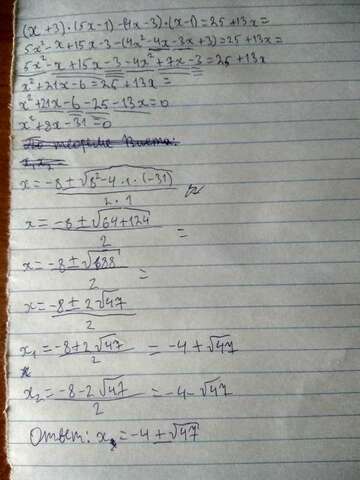 (x+3)·(5x-1)-(4x-3)·(x-1)=25+13x=
5x²-x+15x-3-(4x²-4x-3x+3)=25+13x=
5x²-x+15x-3-4x²+7x-3=25+13x
x²+21x-6=25+13x=
x²+21x-6-25-13x=0
x²+8x-31=0
По теореме Виета:
x=-8±√8²-4·1·(-31)/2·1
x=-8±√64+124/2 =
x=-8±√188/2 =
x=-8±2√47/2
x₁=-8+2√47/2=-4+√47
x₂=-8-2√47/2=-4-√47
Ответ: x=-4±√47